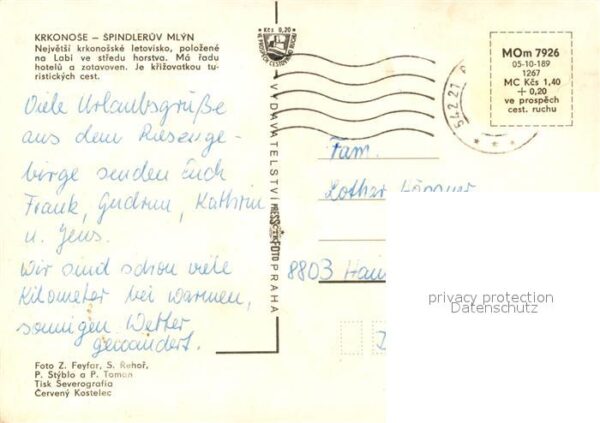 KRKONOŠE – SPINDLERŮV MLÝN
Největší krkonošské letovisko, položené
na Labi ve středu horstva. Má řadu
hotelů a zotavoven. Je křižovatkou tu-
ristických cest.
Viele Urlaubsgrüße
aus dem Riesenge-
birge senden Euch
Frank, Gudrun, Kathrin
u. Jens.
Wir sind schon viele
Kilometer bei warmen,
sonnigen Wetter
gewandert.
Foto Z. Feyfar, S. Řehoř,
P. Stýblo a P. Toman
Tisk Severografia
Červený Kostelec
VYDAVATELSTVÍ PRESSFOTO PRAHA
Kčs 0,20
VE PROSPĚCH CESTOVNÍHO RUCHU
MOm 7926
05-10-189
1267
MC Kčs 1,40
+ 0,20
ve prospěch
cest. ruchu
Fam.
Lothar
8803
privacy protection
Datenschutz